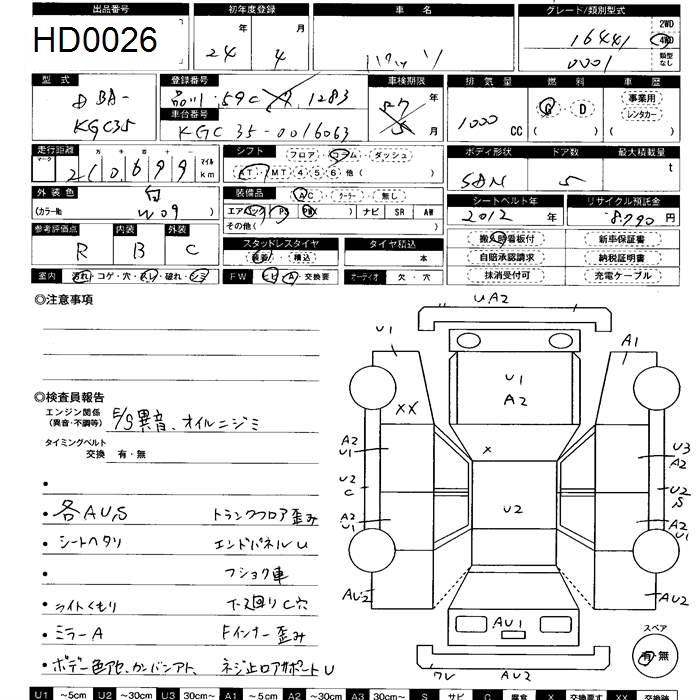 出品番号 初年度登録 車名 グレード/類別型式
HD0026
年 月 2WD
24 4 16441 4WD
0001 類型なし
型式 登録番号 車検期限 排気量 燃料 車歴
DBA- 品川 59C 1283 27 年 G・D 事業用
KGC35 車台番号 1000 CC レンタカー
KGC35-0016063 5 月 ( ) ( )
走行距離 シフト フロア・コラム・ダッシュ ボディ形状 ドア数 最大積載量
マーク 十 万 千 百 十 一 マイル
210699 km AT・MT 4 5 6 他( ) SDN 5 t
外装色 白 装備品 A/C・クーラー・無し シートベルト年 リサイクル預託金
(カラーNo W09 ) エアバック PS PWX ナビ SR AW 2012 年 8,790 円
その他( )
参考評価点 内装 外装 スタッドレスタイヤ タイヤ積込 搬入時看板付 新車保証書
R B C 装着・積込 本 自賠承認請求 納税証明書
室内 汚れ・コゲ・穴・スレ・破れ・シミ FW ヒビ・A・交換要 オーディオ 欠・穴 抹消受付可 充電ケーブル
◎注意事項
UA2
U1 A1
U1
A2
◎検査員報告
エンジン関係
(異音・不調等) E/G異音、オイルニジミ
XX
タイミングベルト
交換 有・無
A2 U1 X U3 A2
U2 C U2 U2 S
• 各AU,S トランクフロア歪み
A2 U1 A2 U1
• シートヘタリ エンドパネルU
フショク車
AU2 AU2
• ライトクモリ 下回りC穴
AU1
• ミラーA Fインナー歪み
スペア
有・無
• ボデー色アセ、カンバンアト、ネジ止ロアサポートU
ワレ AU2
U1 ～5cm U2 ～30cm U3 30cm～ A1 ～5cm A2 ～30cm A3 30cm～ S サビ C 腐食 X 交換要す XX 交換跡